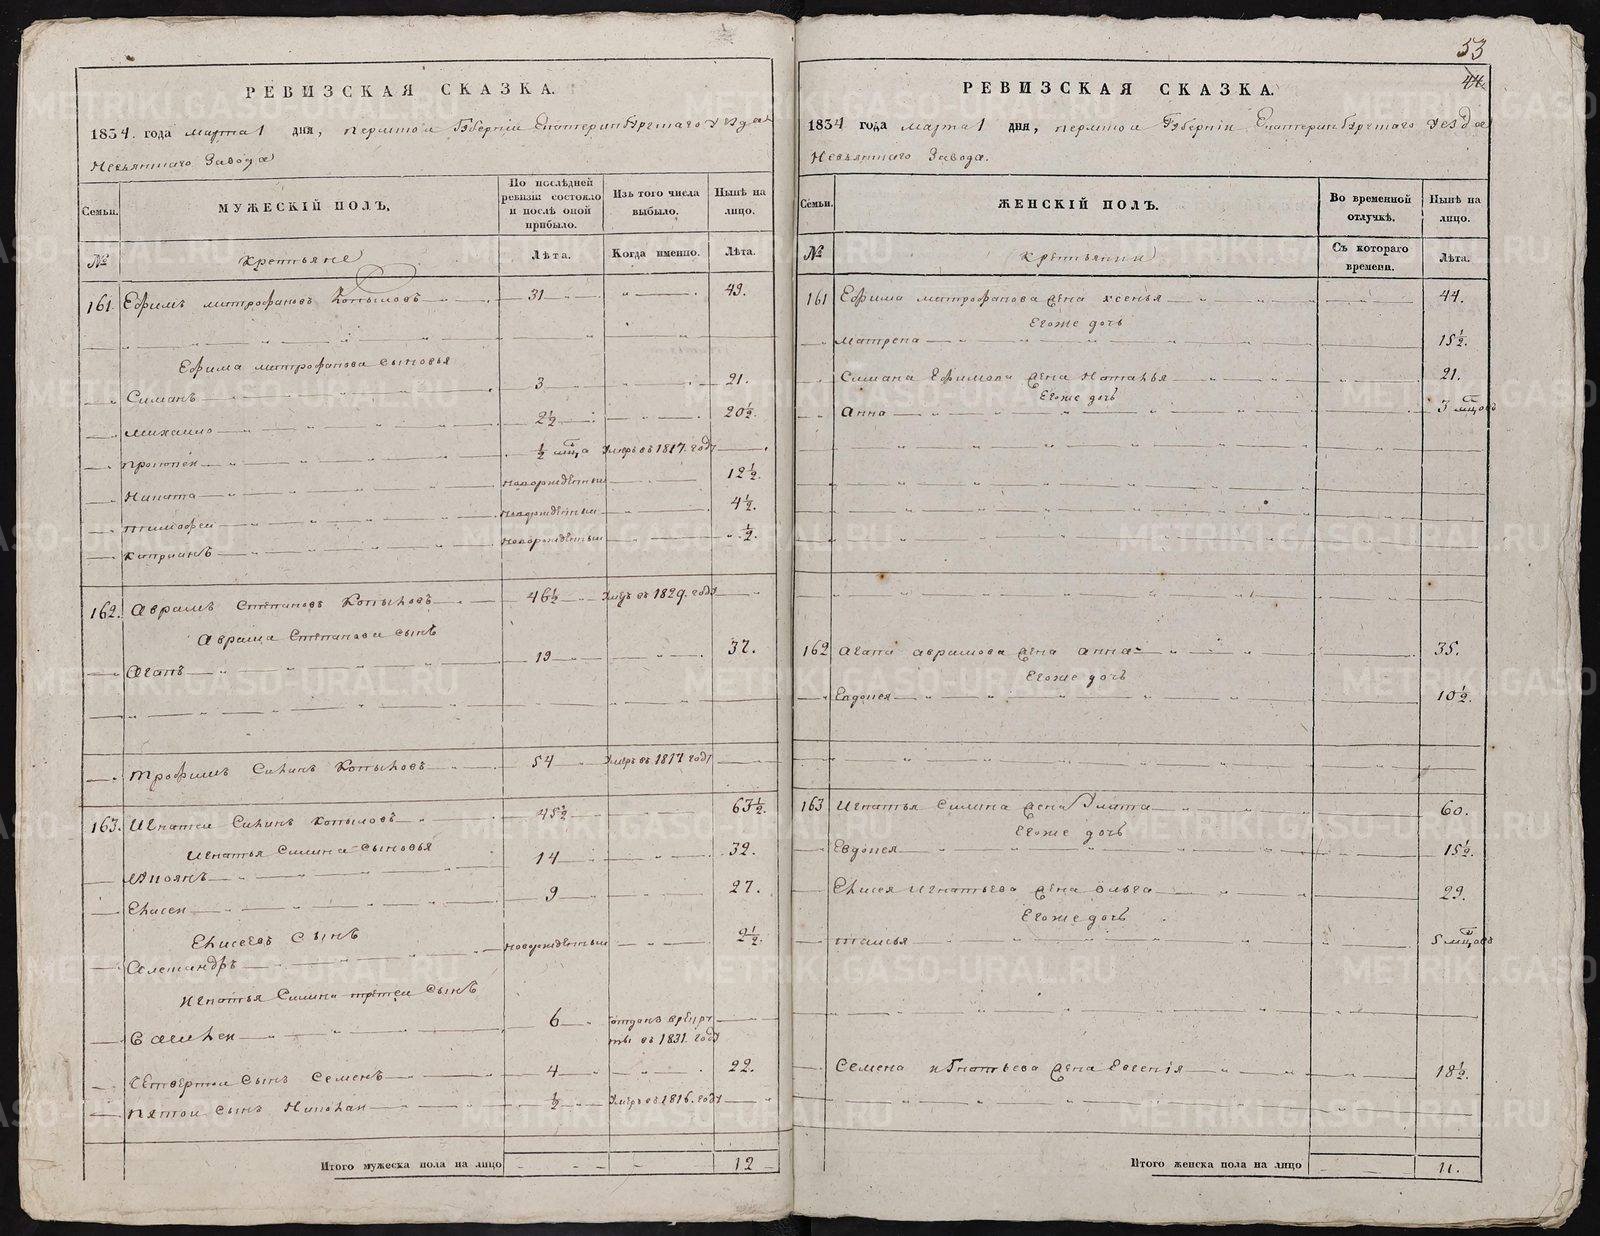 53
44
РЕВИЗСКАЯ СКАЗКА.
1834. года марта 1 дня, пермской Губерніи Екатеринбургскаго уезда
Невьянскаго Завода
Семьи.
МУЖЕСКІЙ ПОЛЪ,
По послѣдней ревизіи состояло и послѣ оной прибыло.
Изъ того числа выбыло.
Нынѣ на лицо.
№
крестьяне
Лѣта.
Когда именно.
Лѣта.
161. Ефимъ митрофановъ Копыловъ 31 49.
Ефима митрофанова сыновья
Симанъ 3 21.
михаило 2½ 20½.
прокопеи ½ мца Умеръ въ 1817. году
Никита новорожденныи 12½.
тимофеи новорожденныи 4½.
каприанъ новорожденныи ½.
162. Аврамъ Степановъ Копыловъ 46½ Умеръ въ 1829. году
Аврама Степанова сынъ
Агапъ 19 37.
трофимъ Силинъ Копыловъ 54 Умеръ въ 1817 году
163. Игнатеи Силинъ копыловъ 45½ 63½.
Игнатья Силина сыновья
14 32.
Елисеи 9 27.
Елисеевъ сынъ
Александръ новорожденныи 2½.
Игнатья Силина третеи сынъ
Савелеи 6 отданъ в рекруты въ 1831. году
Четвертои сынъ Семенъ 4 22.
пятои сынъ Николаи ½ Умеръ въ 1816. году
Итого мужеска пола на лицо 12
РЕВИЗСКАЯ СКАЗКА.
1834 года марта 1 дня, пермской Губерніи Екатеринбургскаго уезда
Невьянскаго Завода.
Семьи.
ЖЕНСКІЙ ПОЛЪ.
Во временной отлучкѣ.
Нынѣ на лицо.
№
крестьянки
Съ котораго времени.
Лѣта.
161 Ефима митрофанова жена ксенья 44.
Егоже дочь
матрена 15½.
Симана Ефимова жена Наталья 21.
Егоже дочь
Анна 3 мцовъ
162 Агапа аврамова жена анна 35.
Егоже дочь
Евдокея 10½.
163 Игнатья Силина жена Улита 60.
Егоже дочь
Евдокея 15½.
Елисея Игнатьева жена ольга 29.
Егоже дочь
таисья 5 мцовъ
Семена игнатьева жена Евгенія 18½.
Итого женска пола на лицо 11.
METRIKI.GASO-URAL.RU